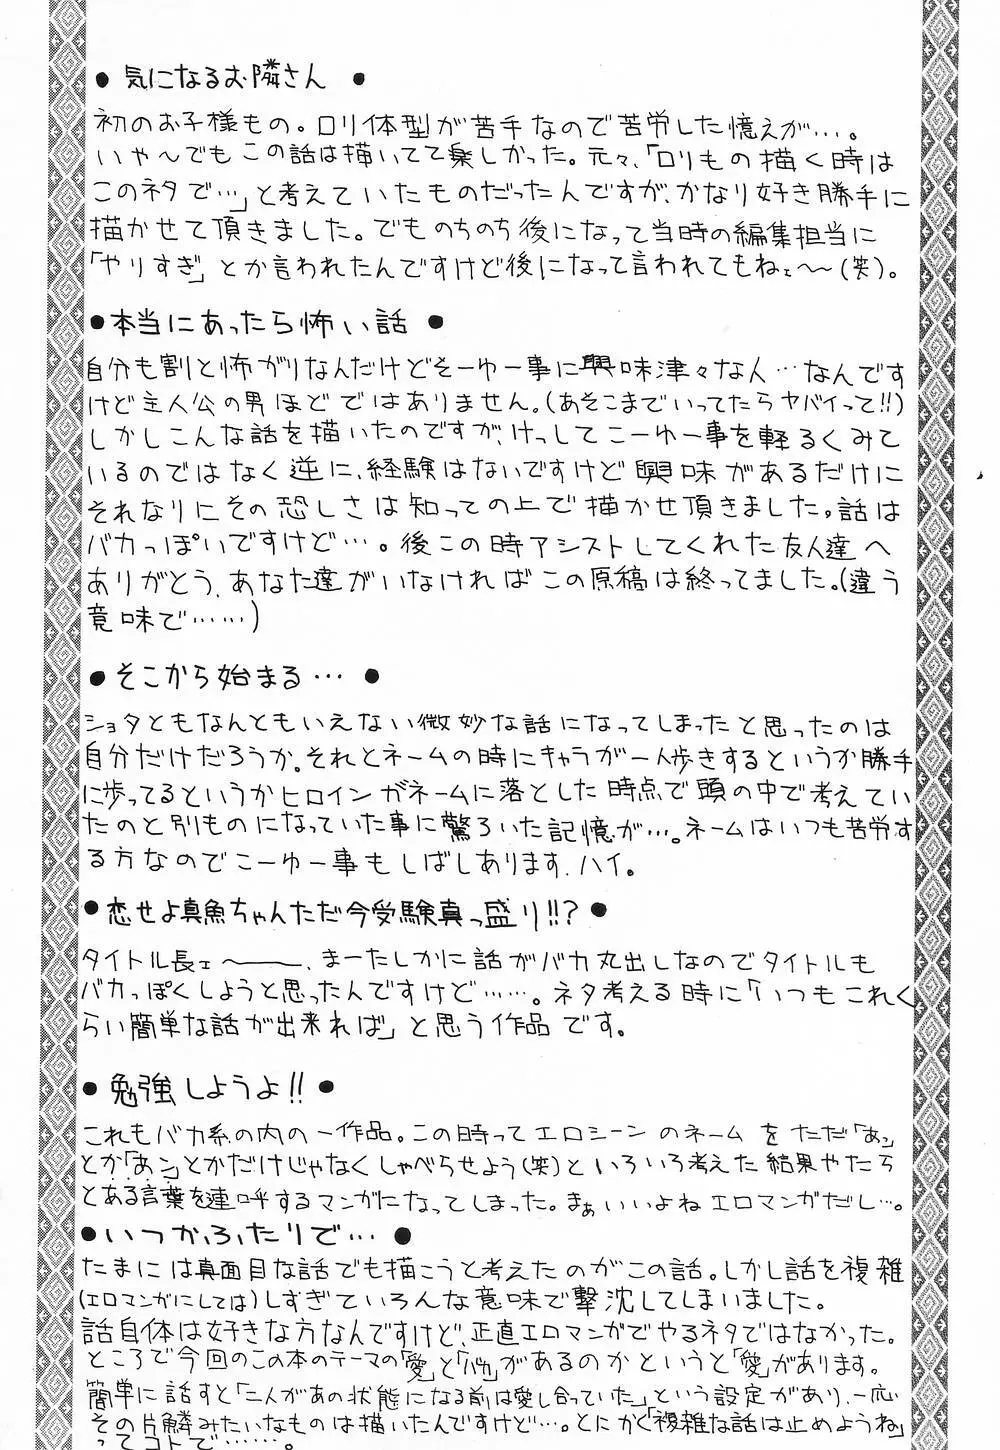 ● 気になるお隣さん ●
初のお子様もの。ロリ体型が苦手なので苦労した憶えが…。
いや〜でもこの話は描いてて楽しかった。元々、「ロリもの描く時は
このネタで…」と考えていたものだったんですが、かなり好き勝手に
描かせて頂きました。でものちのち後になって当時の編集担当に
「やりすぎ」とか言われたんですけど後になって言われてもねェ〜(笑)。
● 本当にあったら怖い話 ●
自分も割と怖がりなんだけどそーゆー事に興味津々な人…なんです
けど主人公の男ほどではありません。(あそこまでいってたらヤバイって!!)
しかしこんな話を描いたのですが、けっしてこーゆー事を軽るくみて
いるのではなく逆に、経験はないですけど興味があるだけに
それなりにその恐しさは知っての上で描かせ頂きました。話は
バカっぽいですけど…。後この時アシストしてくれた友人達へ
ありがとう、あなた達がいなければこの原稿は終ってました。(違う
意味で……)
● そこから始まる… ●
ショタともなんともいえない微妙な話になってしまったと思ったのは
自分だけだろうか。それとネームの時にキャラが一人歩きするというか勝手
に歩ってるというかヒロインがネームに落とした時点で頭の中で考えてい
たのと別ものになっていた事に驚ろいた記憶が…。ネームはいつも苦労す
る方なのでこーゆー事もしばしあります、ハイ。
● 恋せよ真魚ちゃんただ今受験真っ盛り!!? ●
タイトル長ェ〜――、まーたしかに話がバカ丸出しなのでタイトルも
バカっぽくしようと思ったんですけど……。ネタ考える時に「いつもこれく
らい簡単な話が出来れば」と思う作品です。
● 勉強しようよ!! ●
これもバカ系の内の一作品。この時ってエロシーンのネームをただ「あッ」
とか「あン」とかだけじゃなくしゃべらせよう(笑)といろいろ考えた結果やたら
とある言葉を連呼するマンガになってしまった。まぁいいよねエロマンガだし…。
● いつかふたりで… ●
たまには真面目な話でも描こうと考えたのがこの話。しかし話を複雑
(エロマンガにしては)しすぎていろんな意味で撃沈してしまいました。
話自体は好きな方なんですけど、正直エロマンガでやるネタではなかった。
ところで今回のこの本のテーマの「愛」と「バカ」があるのかというと「愛」があります。
簡単に話すと「二人があの状態になる前は愛し合っていた」という設定があり、一応
その片鱗みたいなものは描いたんですけど…。とにかく「複雑な話は止めようね」
ってコトで……。